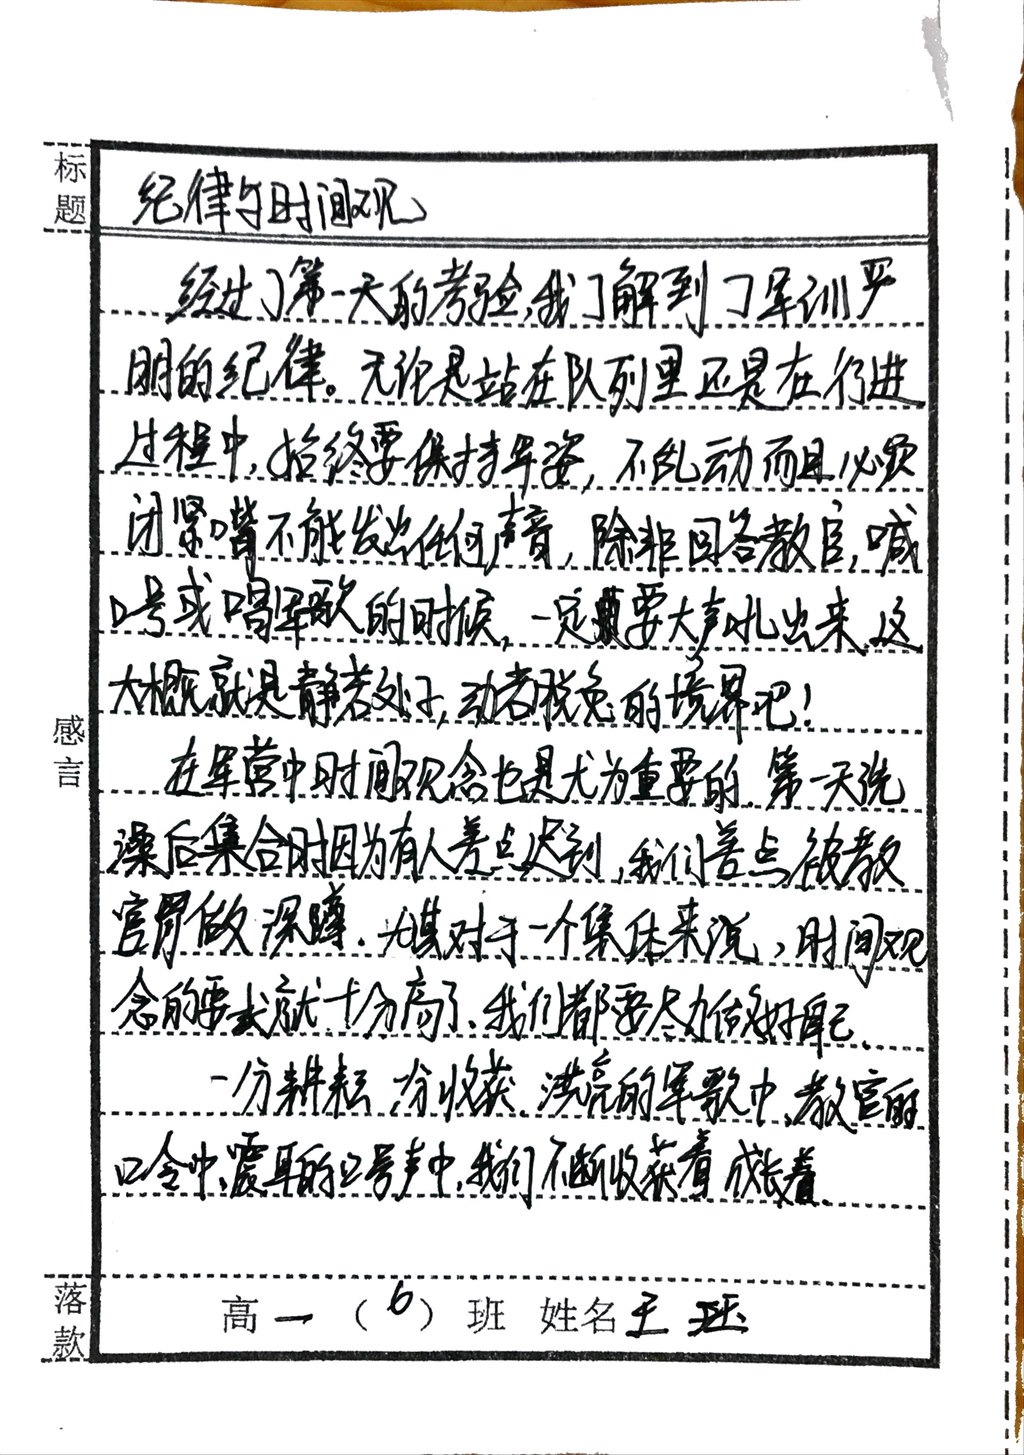 标题
纪律与时间观
经过了第一天的考验,我了解到了军训严
明的纪律。无论是站在队列里还是在行进
过程中,始终要保持军姿,不乱动而且必须
闭紧嘴不能发出任何声音,除非回答教官,喊
口号或唱军歌的时候,一定要大声吼出来.这
大概就是静若处子,动若脱兔的境界吧!
感言
在军营中时间观念也是尤为重要的.第一天洗
澡后集合时因为有人差点迟到,我们差点被教
官罚做深蹲.尤其对于一个集体来说,时间观
念的要求就十分高了、我们都要尽力做好自己.
一分耕耘一分收获.洪亮的军歌中,教官的
口令中、震耳的口号声中,我们不断收获着成长着.
落款
高一(6)班 姓名王珏